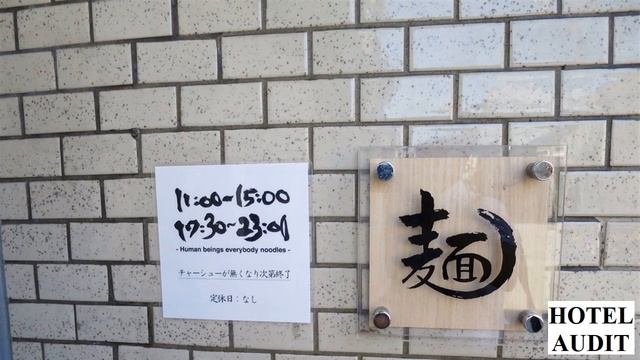 11:00~15:00
17:30~23:00
- Human beings everybody noodles -
チャーシューが無くなり次第終了
定休日：なし
麺
HOTEL
AUDIT